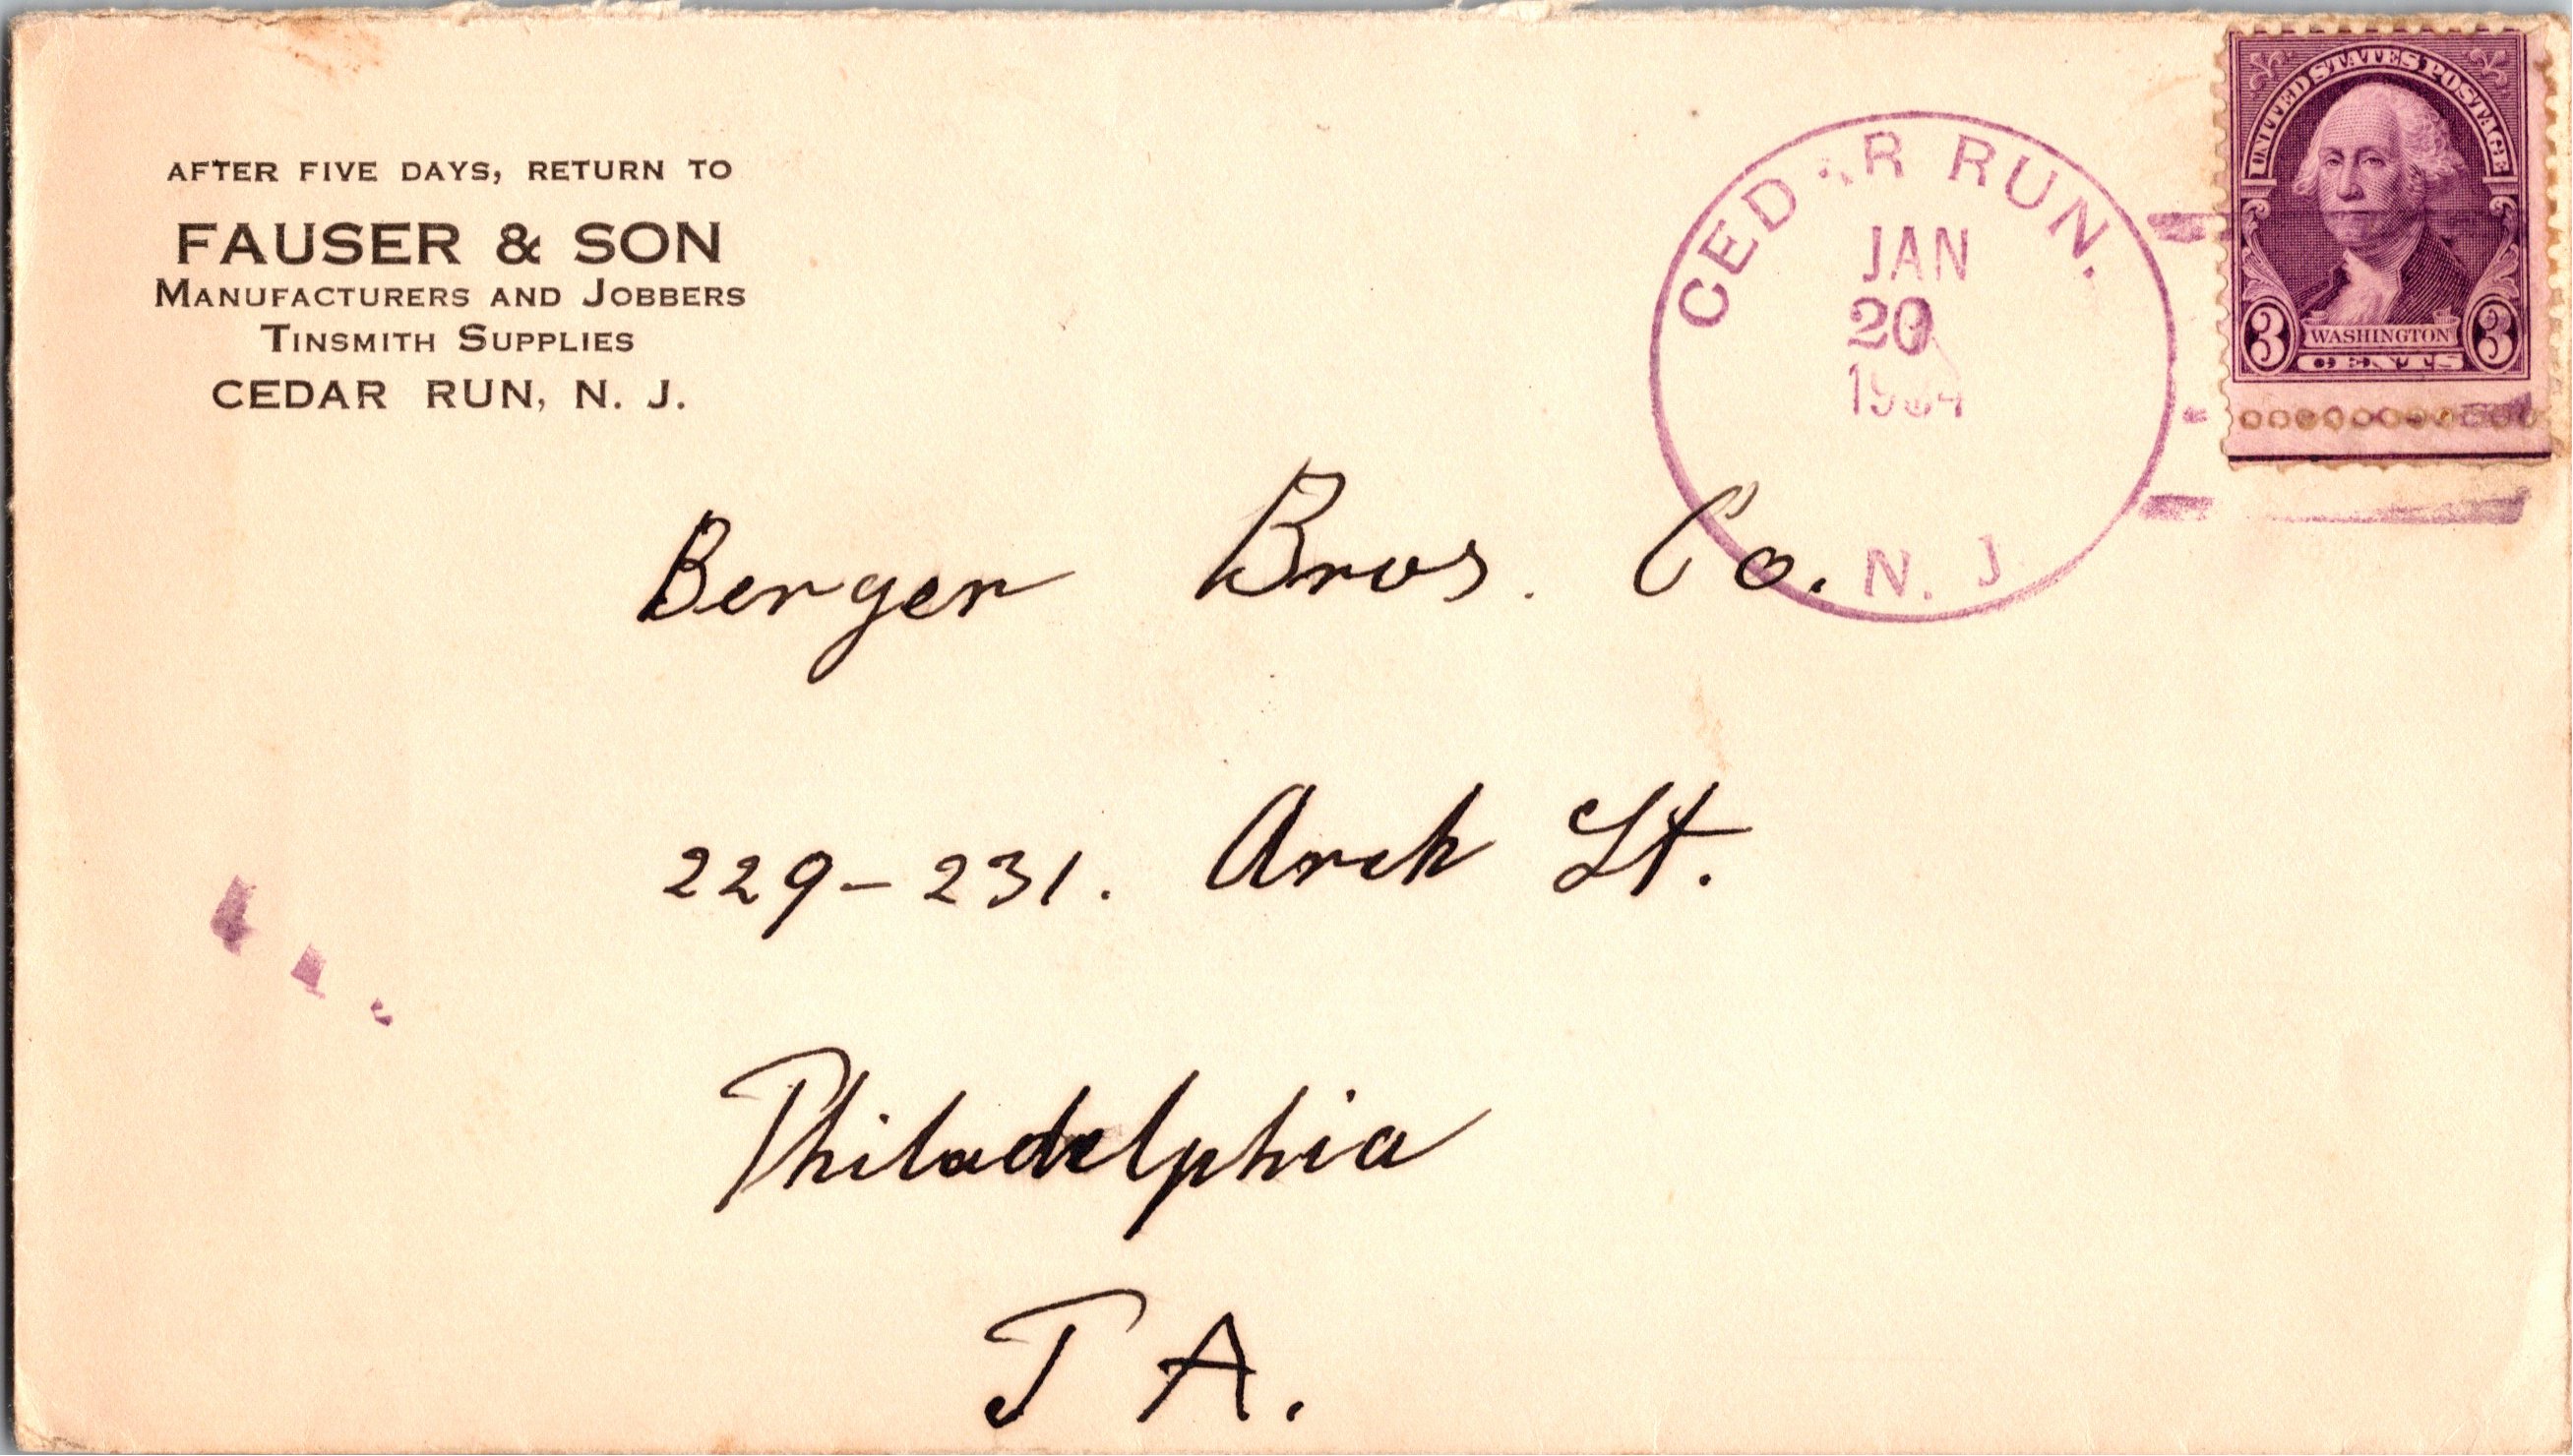 AFTER FIVE DAYS, RETURN TO
FAUSER & SON
MANUFACTURERS AND JOBBERS
TINSMITH SUPPLIES
CEDAR RUN, N. J.
CEDAR RUN.
JAN
20
1934
N. J.
UNITED STATES POSTAGE
3 WASHINGTON 3
CENTS
Berger Bros. Co.
229-231. Arch St.
Philadelphia
PA.